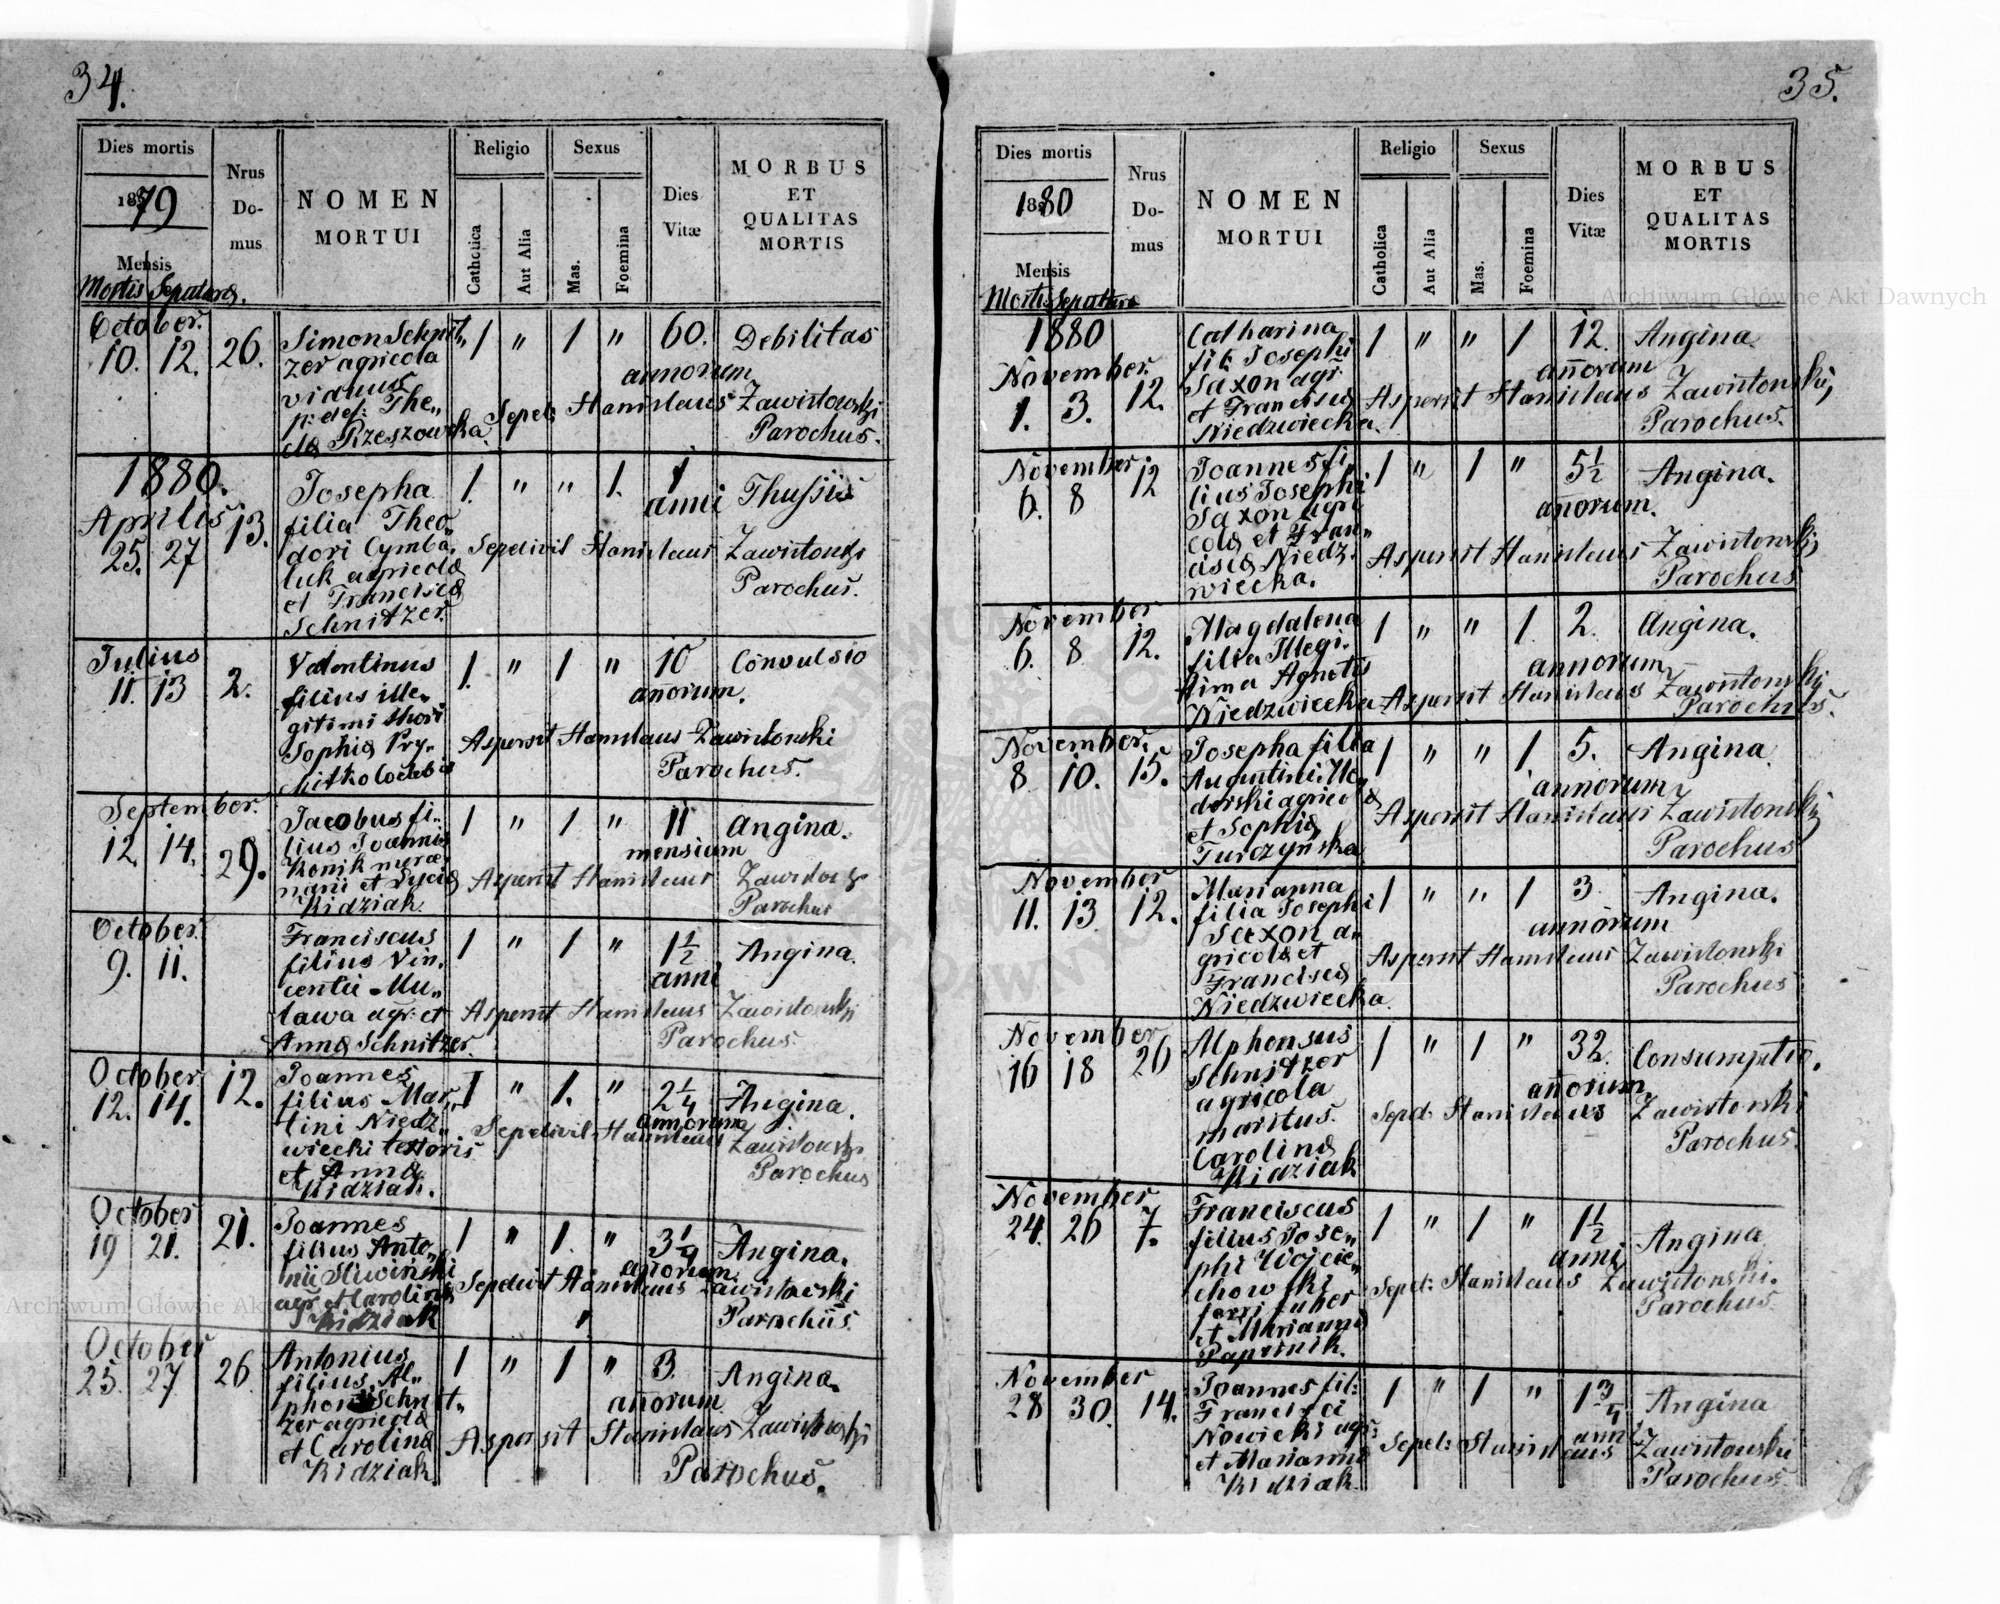 34.
Dies mortis
1879
Mensis
Mortis Sepulturæ.
Nrus
Do-
mus
NOMEN
MORTUI
Religio
Catholica
Aut Alia
Sexus
Mas.
Foemina
Dies
Vitæ
MORBUS
ET
QUALITAS
MORTIS
October.
10. 12. 26.
Simon Schnit„
zer agricola
viduus
p. def: The„
clæ Rzeszowska.
1 " 1 " 60. Debilitas
annorum
Sepel: Stanislaus Zawistowski
Parochus.
1880.
Aprilis
25. 27 13.
Josepha
filia Theo„
dori Cymba„
luk agricolæ
et Franciscæ
Schnitzer.
1. " " 1. 1 Thussis
anni
Sepelivit Stanislaus Zawistowski
Parochus.
Julius
11. 13 2.
Valentinus
filius ille„
gitimi thori
Sophiæ Pry„
1. " 1 " 10 Convulsio
anorum.
Aspersit Stanislaus Zawistowski
Parochus.
September.
12. 14. 29.
Jacobus fi„
lius Joannis
Konik
et
Kidziak.
1 " 1 " 11 Angina.
mensium
Aspersit Stanislaus Zawistowski
Parochus
October.
9. 11.
Franciscus
filius Vin„
centii Mu„
lawa agr: et
Annæ Schnitzer.
1 " 1 " 1½ Angina.
anni
Aspersit Stanislaus Zawistowski
Parochus.
October
12. 14. 12.
Joannes
filius Mar„
tini Niedz„
wiecki textoris
et Annæ
Kidziak.
1 " 1. " 2¼ Angina.
annorum
Sepelivit Stanislaus Zawistowski
Parochus
October
19 21. 21.
Joannes
filius Anto„
nii Sliwiński
agr. et Carolinæ
Kidziak
1 " 1. " 3¼ Angina.
anorum.
Sepelivit Stanislaus Zawistowski
Parochus.
October
25. 27. 26
Antonius
filius Al„
phonsi Schnit„
zer agricolæ
et Carolinæ
Kidziak
1 " 1 " 3. Angina.
añorum
Aspersit Stanislaus Zawistowski
Parochus.
35.
Dies mortis
1880
Mensis
Mortis Sepulturæ
Nrus
Do-
mus
NOMEN
MORTUI
Religio
Catholica
Aut Alia
Sexus
Mas.
Foemina
Dies
Vitæ
MORBUS
ET
QUALITAS
MORTIS
1880
November.
1. 3. 12.
Catharina
fil: Josephi
Saxon agr:
et Franciscæ
Niedzwiecka.
1 " " 1 12. Angina
añorum
Aspersit Stanislaus Zawistowski,
Parochus.
November
6. 8 12
Joannes fi„
lius Josephi
Saxon agri„
colæ et Fran„
ciscæ Niedz„
wiecka.
1 " 1 " 5½ Angina.
añorum.
Aspersit Stanislaus Zawistowski,
Parochus
November
6. 8 12.
Magdalena
filia Illegi„
tima Agnetis
Niedzwiecka
1 " " 1. 2. Angina.
annorum
Aspersit Stanislaus Zawistowski
Parochus.
November.
8 10. 15.
Josepha filia
Augustini
agricolæ
et Sophiæ
Turczyńska
1 " " 1 5. Angina.
annorum
Aspersit Stanislaus Zawistowski
Parochus
November
11. 13 12.
Marianna
filia Josephi
Saxon a„
gricolæ et
Franciscæ
Niedzwiecka.
1 " " 1 3 Angina.
annorum
Aspersit Stanislaus Zawistowski
Parochus
November
16 18 26
Alphonsus
Schnitzer
agricola
maritus.
Carolinæ
Kidziak
1 " 1 " 32. Consumptio.
añorum
Sepel: Stanislaus Zawistowski
Parochus.
November
24. 26 7.
Franciscus
filius Jose„
phi Wojcie„
chowski
ferri faber
et Mariannæ
Papiernik.
1 " 1 " 1½ Angina
anni
Sepel: Stanislaus Zawistowski.
Parochus.
November
28 30. 14.
Joannes fil:
Francisci
Nowicki agr:
et Mariannæ
Kidziak.
1 " 1 " 1¾ Angina
anni
Sepel: Stanislaus Zawistowski
Parochus.
Archiwum Główne Akt Dawnych